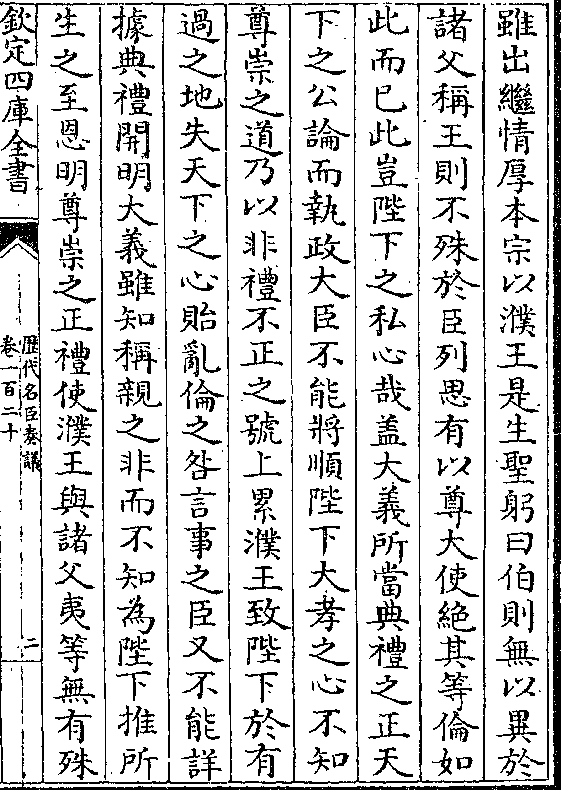 雖出繼情厚本宗以濮王是生聖躬曰伯則無以異於
諸父稱王則不殊於臣列思有以尊大使絶其等倫如
此而已此豈陛下之私心哉盖大義所當典禮之正天
下之公論而執政大臣不能將順陛下大孝之心不知
尊崇之道乃以非禮不正之號上累濮王致陛下於有
過之地失天下之心貽亂倫之咎言事之臣又不能詳
據典禮開明大義雖知稱親之非而不知為陛下推所
生之至恩明尊崇之正禮使濮王與諸父夷等無有殊
欽定四庫全書
歷代名臣奏議
卷一百二十
二